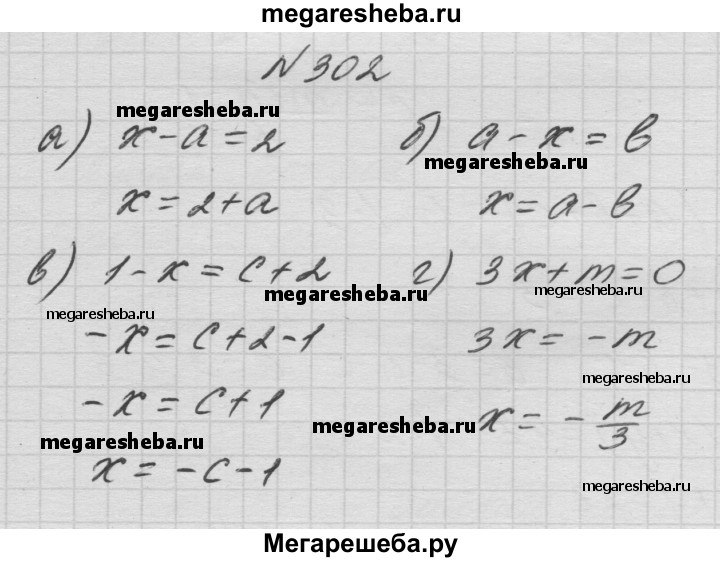 megaresheba.ru
N 302
megaresheba.ru
а) x - a = 2
x = 2 + a
б) a - x = b
megaresheba.ru
x = a - b
в) 1 - x = c + 2
megaresheba.ru
megaresheba.ru
- x = c + 2 - 1
- x = c + 1
megaresheba.ru
x = - c - 1
г) 3x + m = 0
megaresheba.ru
3x = - m
megaresheba.ru
megaresheba.ru
x = - m/3
megaresheba.ru
Мегарешеба.ру